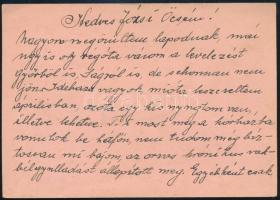 Kedves Józsi Öcsém!
Nagyon megörültem lapodnak, mai
is oly régóta várom a levelezést
Győrből is, Tagról is, de sehonnan nem
jön. Idehaza vagyok, mióta leszereltem
áprilisban, azóta egy kis nyugtom van,
illetve lehetne. De most meg a kórházba
vonulok be hétfőn, nem tudom még biz-
tosan mi bajom, az orvos krónikus vak-
bélgyulladást állapított meg. Egyébként csak